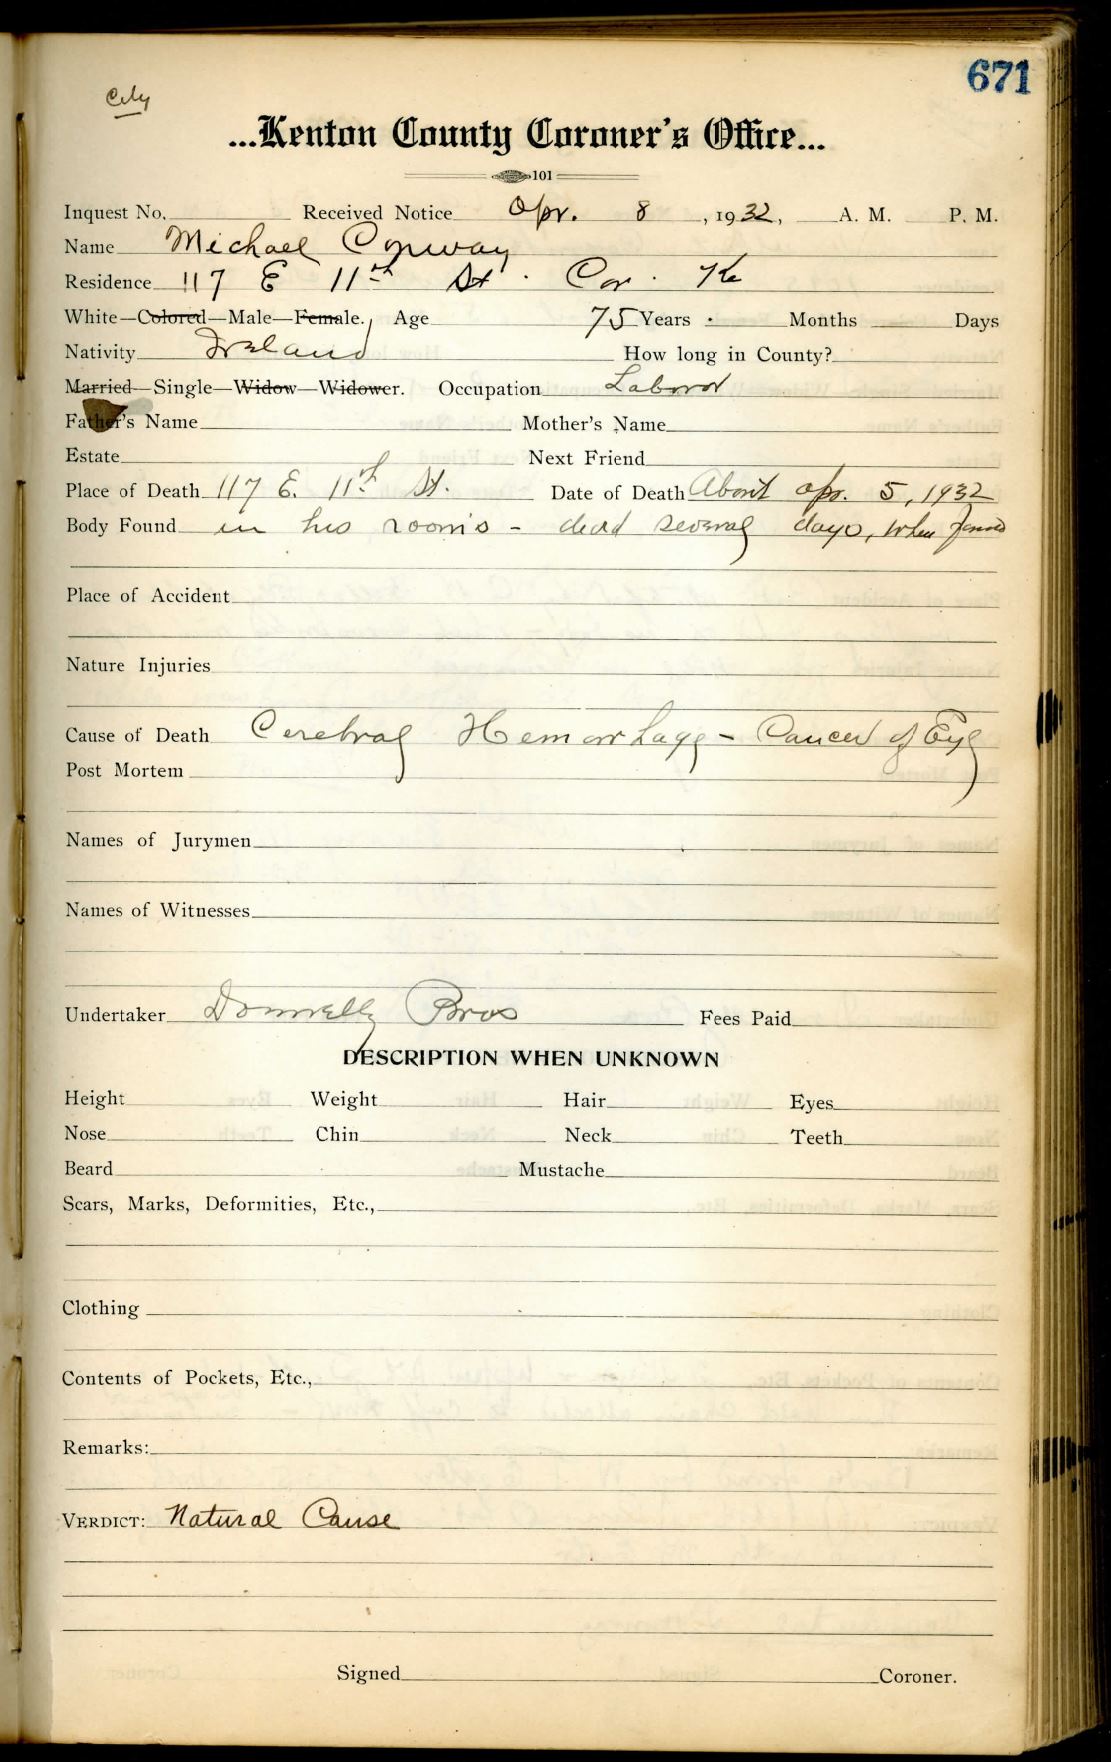 671
City
...Kenton County Coroner's Office...
101
Inquest No. Received Notice Apr. 8, 1932, A. M. P. M.
Name Michael Conway
Residence 117 E 11th St. Cov. Ky
White—Colored—Male—Female. Age 75 Years Months Days
Nativity Ireland How long in County?
Married—Single—Widow—Widower. Occupation Labor
Father's Name Mother's Name
Estate Next Friend
Place of Death 117 E. 11th St. Date of Death About Apr. 5, 1932
Body Found in his rooms - dead several days, when found
Place of Accident
Nature Injuries
Cause of Death Cerebral Hemorrhage - Cancer of Eye
Post Mortem
Names of Jurymen
Names of Witnesses
Undertaker Donnelly Bros Fees Paid
DESCRIPTION WHEN UNKNOWN
Height Weight Hair Eyes
Nose Chin Neck Teeth
Beard Mustache
Scars, Marks, Deformities, Etc.,
Clothing
Contents of Pockets, Etc.,
Remarks:
VERDICT: Natural Cause
Signed Coroner.